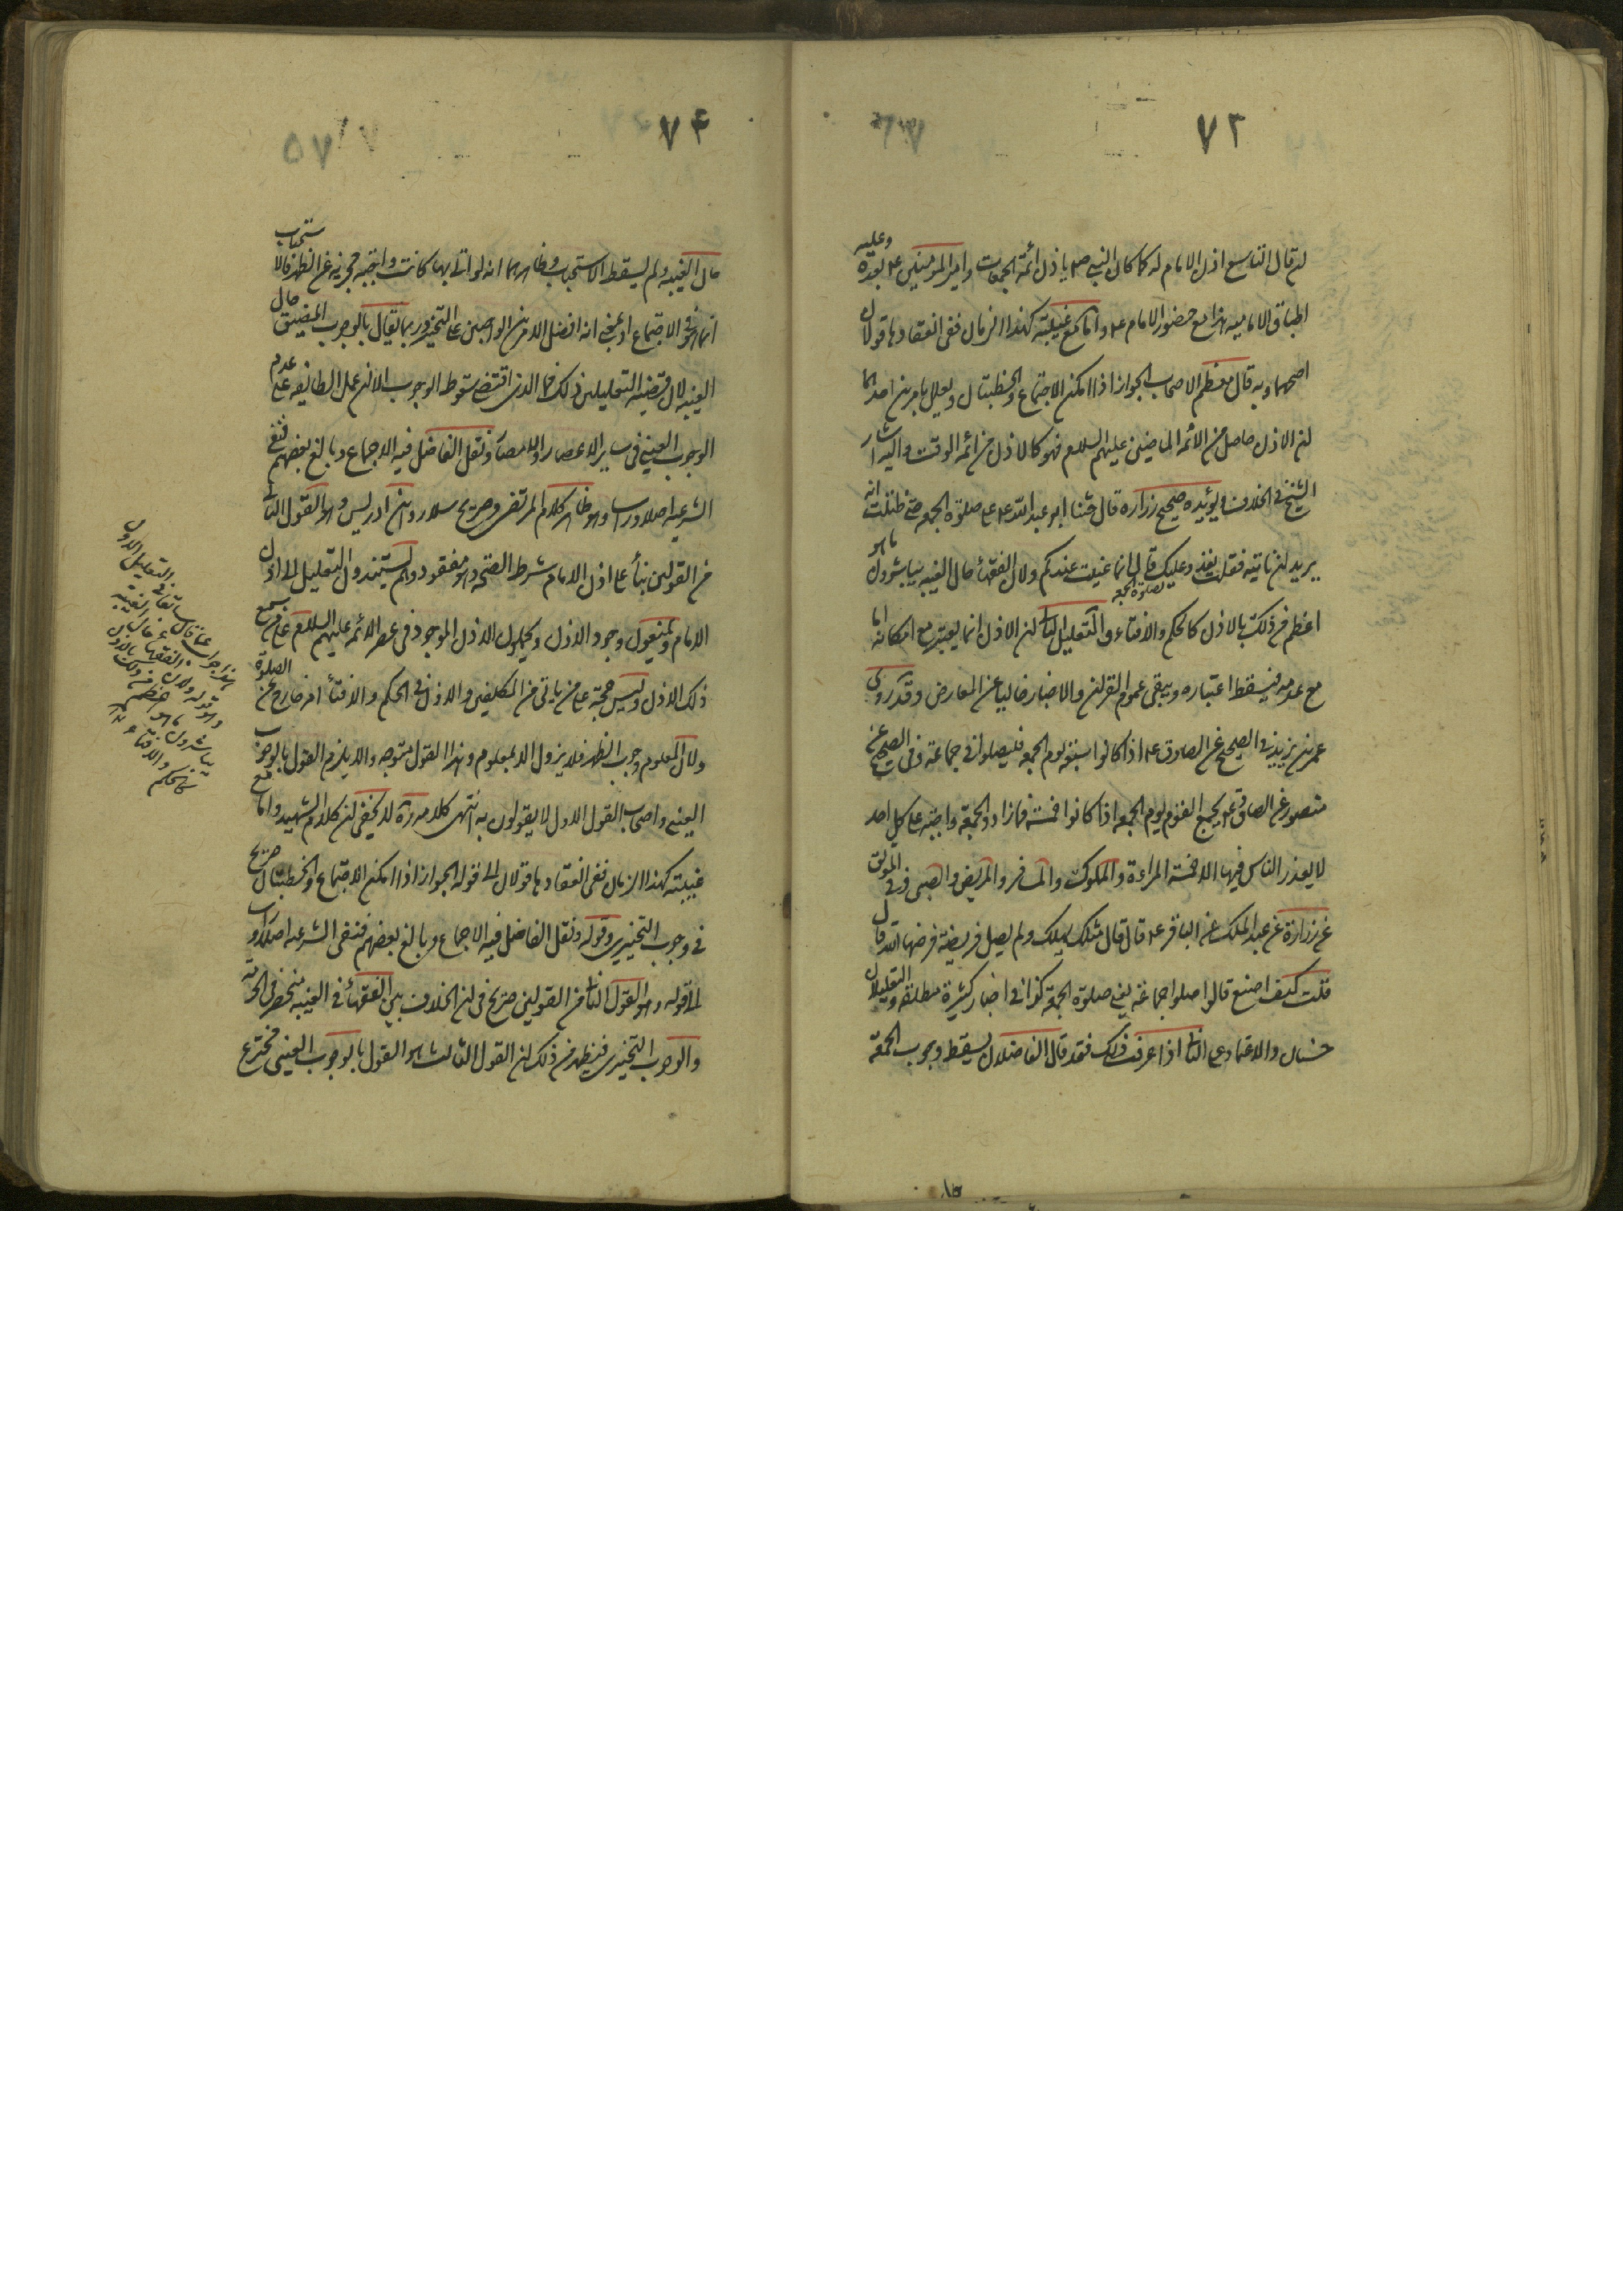 ٧٣
ان قال التاسع اذن الامام له كما كان النبي ص ياذن لائمة الجمعات وامير المؤمنين ع بعده وعليه
اطباق الامامية هذا مع حضور الامام ع واما مع غيبته كهذا الزمان ففى انعقادها قولان
اصحهما وبه قال معظم الاصحاب الجواز اذا امكن الاجتماع والخطبتان ويعلل بامرين احدهما
ان الاذن حاصل من الائمه الماضين عليهم السلام فهو كالاذن من ائمه الوقت واليه اشار
الشيخ فى الخلاف ويؤيده صحيح زراره قال حثنا ابو عبد الله ع على صلوة الجمعه حتى ظننت انه
يريد ان ناتيه فقلت نغدو عليك قال لا انما عنيت عندكم ولان الفقهاء حال الغيبه يباشرون ما هو
اعظم من ذلك بالاذن كالحكم والافتاء والتعليل الثانى ان الاذن انما يعتبر مع امكانه اما
لصلوة الجمعه
مع عدمه فيسقط اعتباره ويبقى عموم القران والاخبار خاليا عن المعارض وقد روى
عمر بن يزيد فى الصحيح عن الصادق ع اذا كانوا سبعة يوم الجمعه فليصلوا فى جماعة وفى الصحيح عن
منصور عن الصادق ع يجمع القوم يوم الجمعه اذا كانوا خمسة فما زادوا والجمعة واجبة على كل احد
لا يعذر الناس فيها الا خمسة المراءة والمملوك والمسافر والمريض والصبى وفى الموثق
عن زرارة عن عبد الملك عن الباقر ع قال قال مثلك يهلك ولم يصل فريضة فرضها الله قال
قلت كيف اصنع قال صلوا جماعة يعنى صلوة الجمعة كذا فى اخبار كثيرة مطلقه والتعليلان
حسنان والاعتماد على الثانى اذا عرفت ذلك فقد قال الفاضلان يسقط وجوب الجمعة
٧٤
٥٧
حال الغيبه ولم يسقط الاستحباب وظاهرهما انه لو اتى بها كانت واجبة مجزيه عن الظهر فالاستحباب
انما هو فى الاجتماع او بمعنى انه افضل الامرين الواجبين على التخيير وربما يقال بالوجوب المضيق حال
الغيبه لان قضية التعليلين ذلك فما الذى اقتضى سقوط الوجوب الا ان عمل الطائفه على عدم
الوجوب العينى فى ساير الاعصار والامصار ونقل الفاضل فيه الاجماع وبالغ بعضهم فنفى
الشرعيه اصلا وراسا وهو ظاهر كلام المرتضى وصريح سلار وابن ادريس وهو القول الثانى
من القولين بناء على اذن الامام شرط الصحه وهو مفقود ولم يستندون التعليل الى اذن
الامام ويمنعون وجود الاذن ويحملون الاذن الموجود فى عصر الائمه عليهم السلام على من سمع
ذلك الاذن وليس حجة على من ياتى من المكلفين والاذن فى الحكم والافتاء امر خارج عن الصلوة
ولان المعلوم وجوب الظهر فلا يزول الا بمعلوم وهذا القول متوجه والا يلزم القول بالوجوب
العينى واصحاب القول الاول لا يقولون به انتهى كلامه ره لا يخفى ان كلام الشهيد واما مع
غيبته كهذا الزمان ففى انعقادها قولان الى قوله الجواز اذا امكن الاجتماع والخطبتان صريح
فى وجوب التخييرى وقوله ونقل الفاضل فيه الاجماع وبالغ بعضهم فنفى الشرعيه اصلا وراسا
الى قوله وهو القول الثانى من القولين صريح فى ان الخلاف بين الفقهاء فى الغيبه منحصر فى الحرمة
والوجوب التخييرى فيظهر من ذلك ان القول الثالث هو القول بالوجوب العينى مخترع
هذا جواب عما قال سابقا فى التعليل الاول
وهو قوله ولان الفقهاء حال الغيبة
يباشرون ما هو اعظم من ذلك بالاذن
كالحكم والافتاء